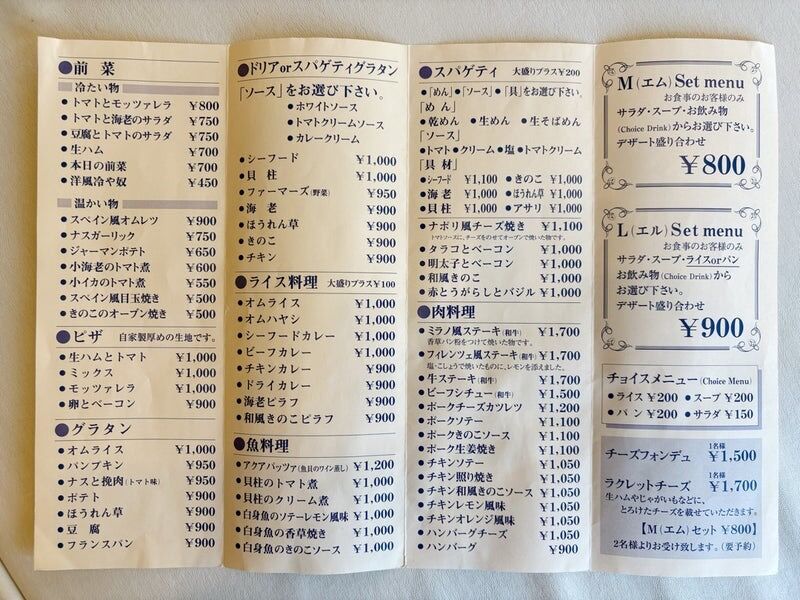 ●前菜
冷たい物
●トマトとモッツァレラ ¥800
●トマトと海老のサラダ ¥750
●豆腐とトマトのサラダ ¥750
●生ハム ¥700
●本日の前菜 ¥700
●洋風冷や奴 ¥450
温かい物
●スペイン風オムレツ ¥900
●ナスガーリック ¥750
●ジャーマンポテト ¥650
●小海老のトマト煮 ¥600
●小イカのトマト煮 ¥550
●スペイン風目玉焼き ¥500
●きのこのオーブン焼き ¥500
●ピザ 自家製厚めの生地です。
●生ハムとトマト ¥1,000
●ミックス ¥1,000
●モッツァレラ ¥1,000
●卵とベーコン ¥900
●グラタン
●オムライス ¥1,000
●パンプキン ¥950
●ナスと挽肉(トマト味) ¥950
●ポテト ¥900
●ほうれん草 ¥900
●豆腐 ¥900
●フランスパン ¥900
●ドリアorスパゲティグラタン
「ソース」をお選び下さい。
●ホワイトソース
●トマトクリームソース
●カレークリーム
●シーフード ¥1,000
●貝柱 ¥1,000
●ファーマーズ(野菜) ¥950
●海老 ¥900
●ほうれん草 ¥900
●きのこ ¥900
●チキン ¥900
●ライス料理 大盛りプラス¥100
●オムライス ¥1,000
●オムハヤシ ¥1,000
●シーフードカレー ¥1,000
●ビーフカレー ¥1,000
●チキンカレー ¥900
●ドライカレー ¥900
●海老ピラフ ¥900
●和風きのこピラフ ¥900
●魚料理
●アクアパッツァ(魚貝のワイン蒸し) ¥1,200
●貝柱のトマト煮 ¥1,000
●貝柱のクリーム煮 ¥1,000
●白身魚のソテーレモン風味 ¥1,000
●白身魚の香草焼き ¥1,000
●白身魚のきのこソース ¥1,000
●スパゲティ 大盛りプラス¥200
●「めん」●「ソース」●「具」をお選び下さい。
「めん」
●乾めん ●生めん ●生そばめん
「ソース」
●トマト●クリーム●塩●トマトクリーム
「具材」
●シーフード ¥1,100 ●きのこ ¥1,000
●海老 ¥1,000 ●ほうれん草 ¥1,000
●貝柱 ¥1,000 ●アサリ ¥1,000
●ナポリ風チーズ焼き ¥1,100
トマトソースに、チーズをのせてオーブンで焼いた物です。
●タラコとベーコン ¥1,000
●明太子とベーコン ¥1,000
●和風きのこ ¥1,000
●赤とうがらしとバジル ¥1,000
●肉料理
●ミラノ風ステーキ(和牛) ¥1,700
香草パン粉をつけて焼いた物です。
●フィレンツェ風ステーキ(和牛) ¥1,700
塩・こしょうで焼いたものに、レモンを添えました。
●牛ステーキ(和牛) ¥1,700
●ビーフシチュー(和牛) ¥1,500
●ポークチーズカツレツ ¥1,200
●ポークソテー ¥1,100
●ポークきのこソース ¥1,100
●ポーク生姜焼き ¥1,100
●チキンソテー ¥1,050
●チキン照り焼き ¥1,050
●チキン和風きのこソース ¥1,050
●チキンレモン風味 ¥1,050
●チキンオレンジ風味 ¥1,050
●ハンバーグチーズ ¥1,050
●ハンバーグ ¥900
M(エム)Set menu
お食事のお客様のみ
サラダ・スープ・お飲み物
(Choice Drink)からお選び下さい。
デザート盛り合わせ
¥800
L(エル)Set menu
お食事のお客様のみ
サラダ・スープ・ライスorパン
お飲み物(Choice Drink)から
お選び下さい。
デザート盛り合わせ
¥900
チョイスメニュー(Choice Menu)
●ライス ¥200 ●スープ ¥200
●パン ¥200 ●サラダ ¥150
チーズフォンデュ 1名様 ¥1,500
ラクレットチーズ 1名様 ¥1,700
生ハムやじゃがいもなどに、
とろけたチーズを載せていただきます。
【M(エム)セット ¥800】
2名様よりお受け致します。(要予約)